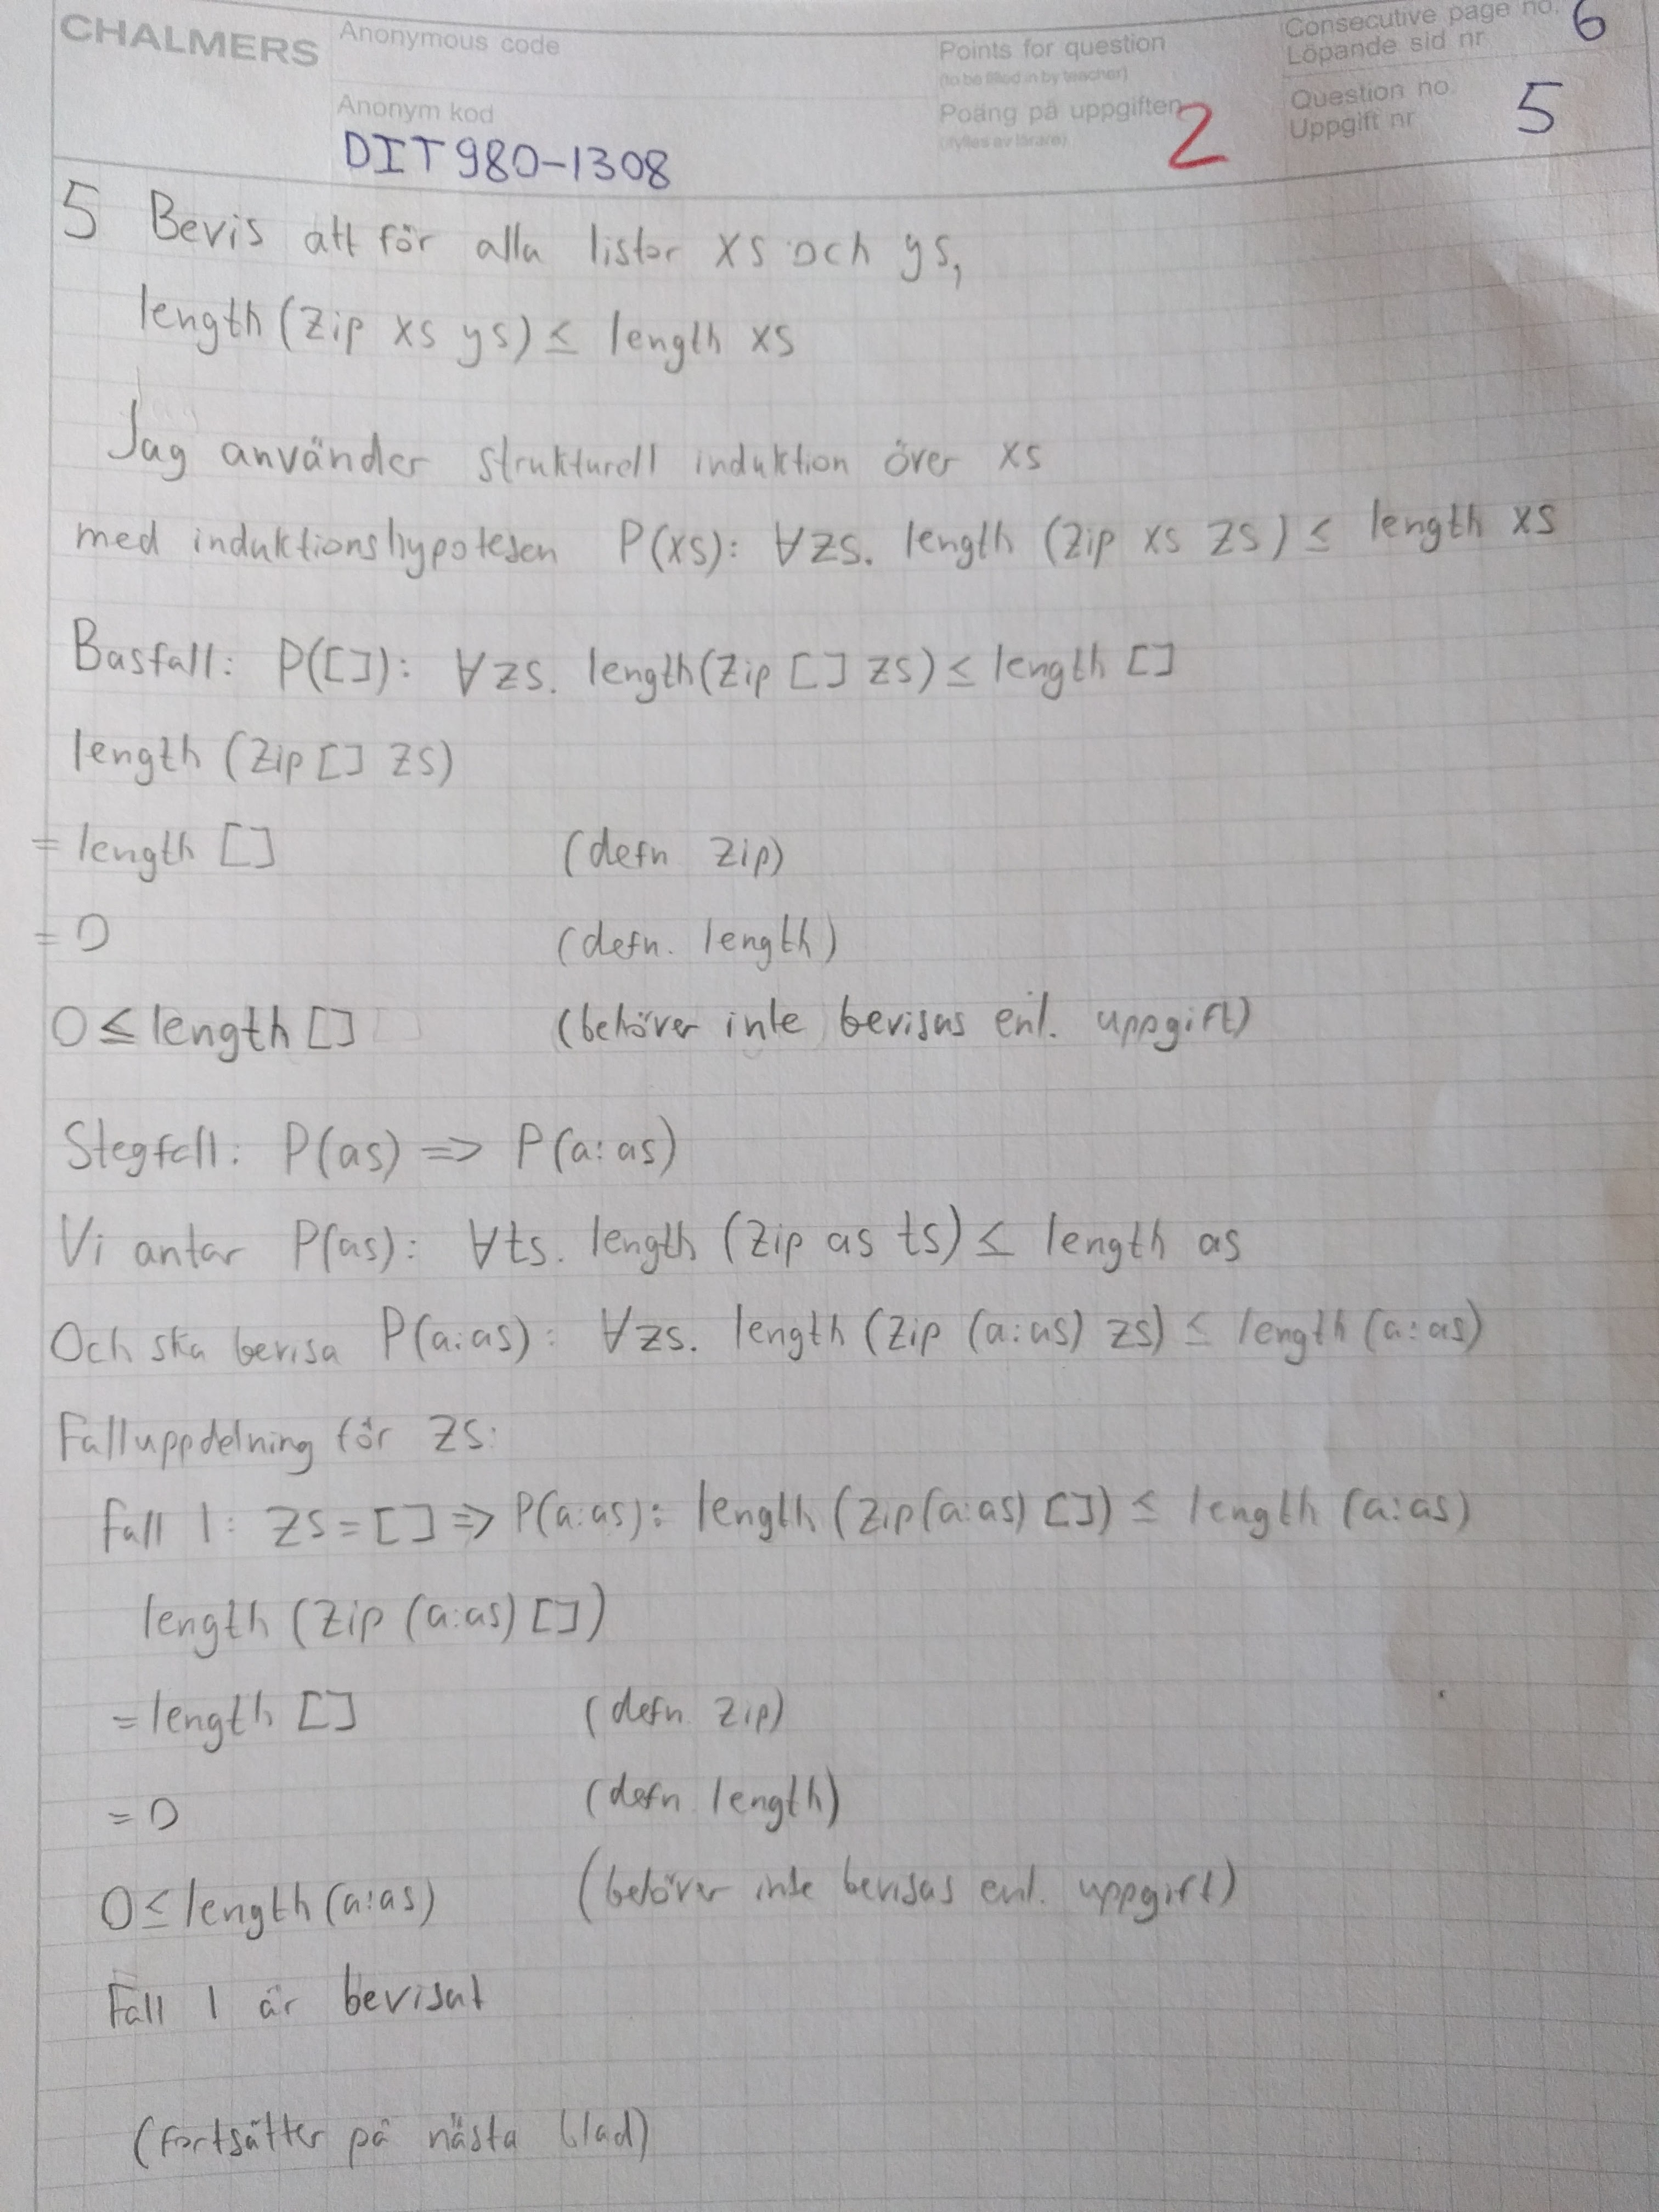 CHALMERS
Anonymous code
Points for question
(to be filled in by teacher)
Consecutive page no.
Löpande sid nr
6
Anonym kod
DIT980-1308
Poäng på uppgiften
(ifylles av lärare)
2
Question no.
Uppgift nr
5
5 Bevis att för alla listor xs och ys,
length (zip xs ys) ≤ length xs
Jag använder strukturell induktion över xs
med induktionshypotesen P(xs): ∀zs. length (zip xs zs) ≤ length xs
Basfall: P([]): ∀zs. length(zip [] zs) ≤ length []
length (zip [] zs)
= length [] (defn zip)
= 0 (defn. length)
0 ≤ length [] (behöver inte bevisas enl. uppgift)
Stegfall: P(as) => P(a:as)
Vi antar P(as): ∀ts. length (zip as ts) ≤ length as
Och ska bevisa P(a:as): ∀zs. length (zip (a:as) zs) ≤ length (a:as)
Falluppdelning för zs:
Fall 1: zs = [] => P(a:as): length (zip(a:as) []) ≤ length (a:as)
length (zip (a:as) [])
= length [] (defn zip)
= 0 (defn. length)
0 ≤ length (a:as) (behöver inte bevisas enl. uppgift)
Fall 1 är bevisat
(fortsätter på nästa blad)